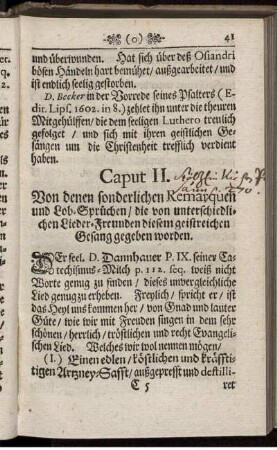 (0) 41
und überwunden. Hat sich über deß Osiandri
bösen Händeln hart bemühet/ außgearbeitet/ und
ist endlich seelig gestorben.
D. Becker in der Vorrede seines Psalters (E-
dit. Lips. 1602. in 8.) zehlet ihn unter die theuren
Mitgehülffen/ die dem seeligen Luthero treulich
gefolget/ und sich mit ihren geistlichen Ge-
sängen um die Christenheit trefflich verdient
haben.
Caput II.
Von denen sonderlichen Remarquen
und Lob-Sprüchen/ die von unterschiedli-
chen Lieder-Freunden diesem geistreichen
Gesang gegeben worden.
DEr seel. D. Dannhauer P. IX. seiner Ca-
techismus-Milch p. 112. seq. weiß nicht
Worte genug zu finden/ dieses unvergleichliche
Lied genug zu erheben. Freylich/ spricht er/ ist
das Heyl uns kommen her/ von Gnad und lauter
Güte/ wie wir mit Freuden singen in dem sehr
schönen/ herrlich/ tröstlichen und recht Evangeli-
schen Lied. Welches wir wol nennen mögen/
(1.) Einen edlen/ köstlichen und kräffti-
tigen Artzney-Safft/ außgepresst und destilli-
C 5 ret